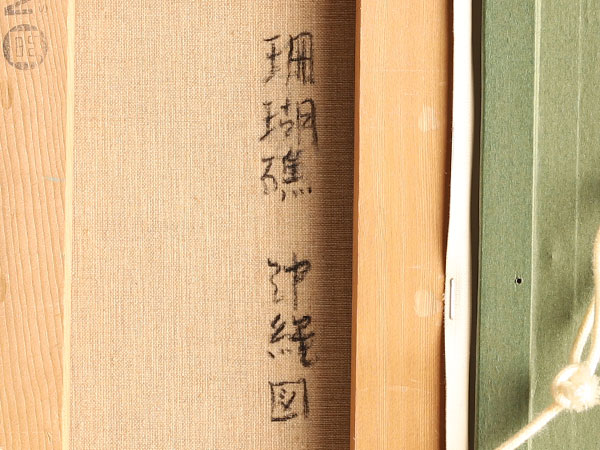 珊瑚礁 沖縄図